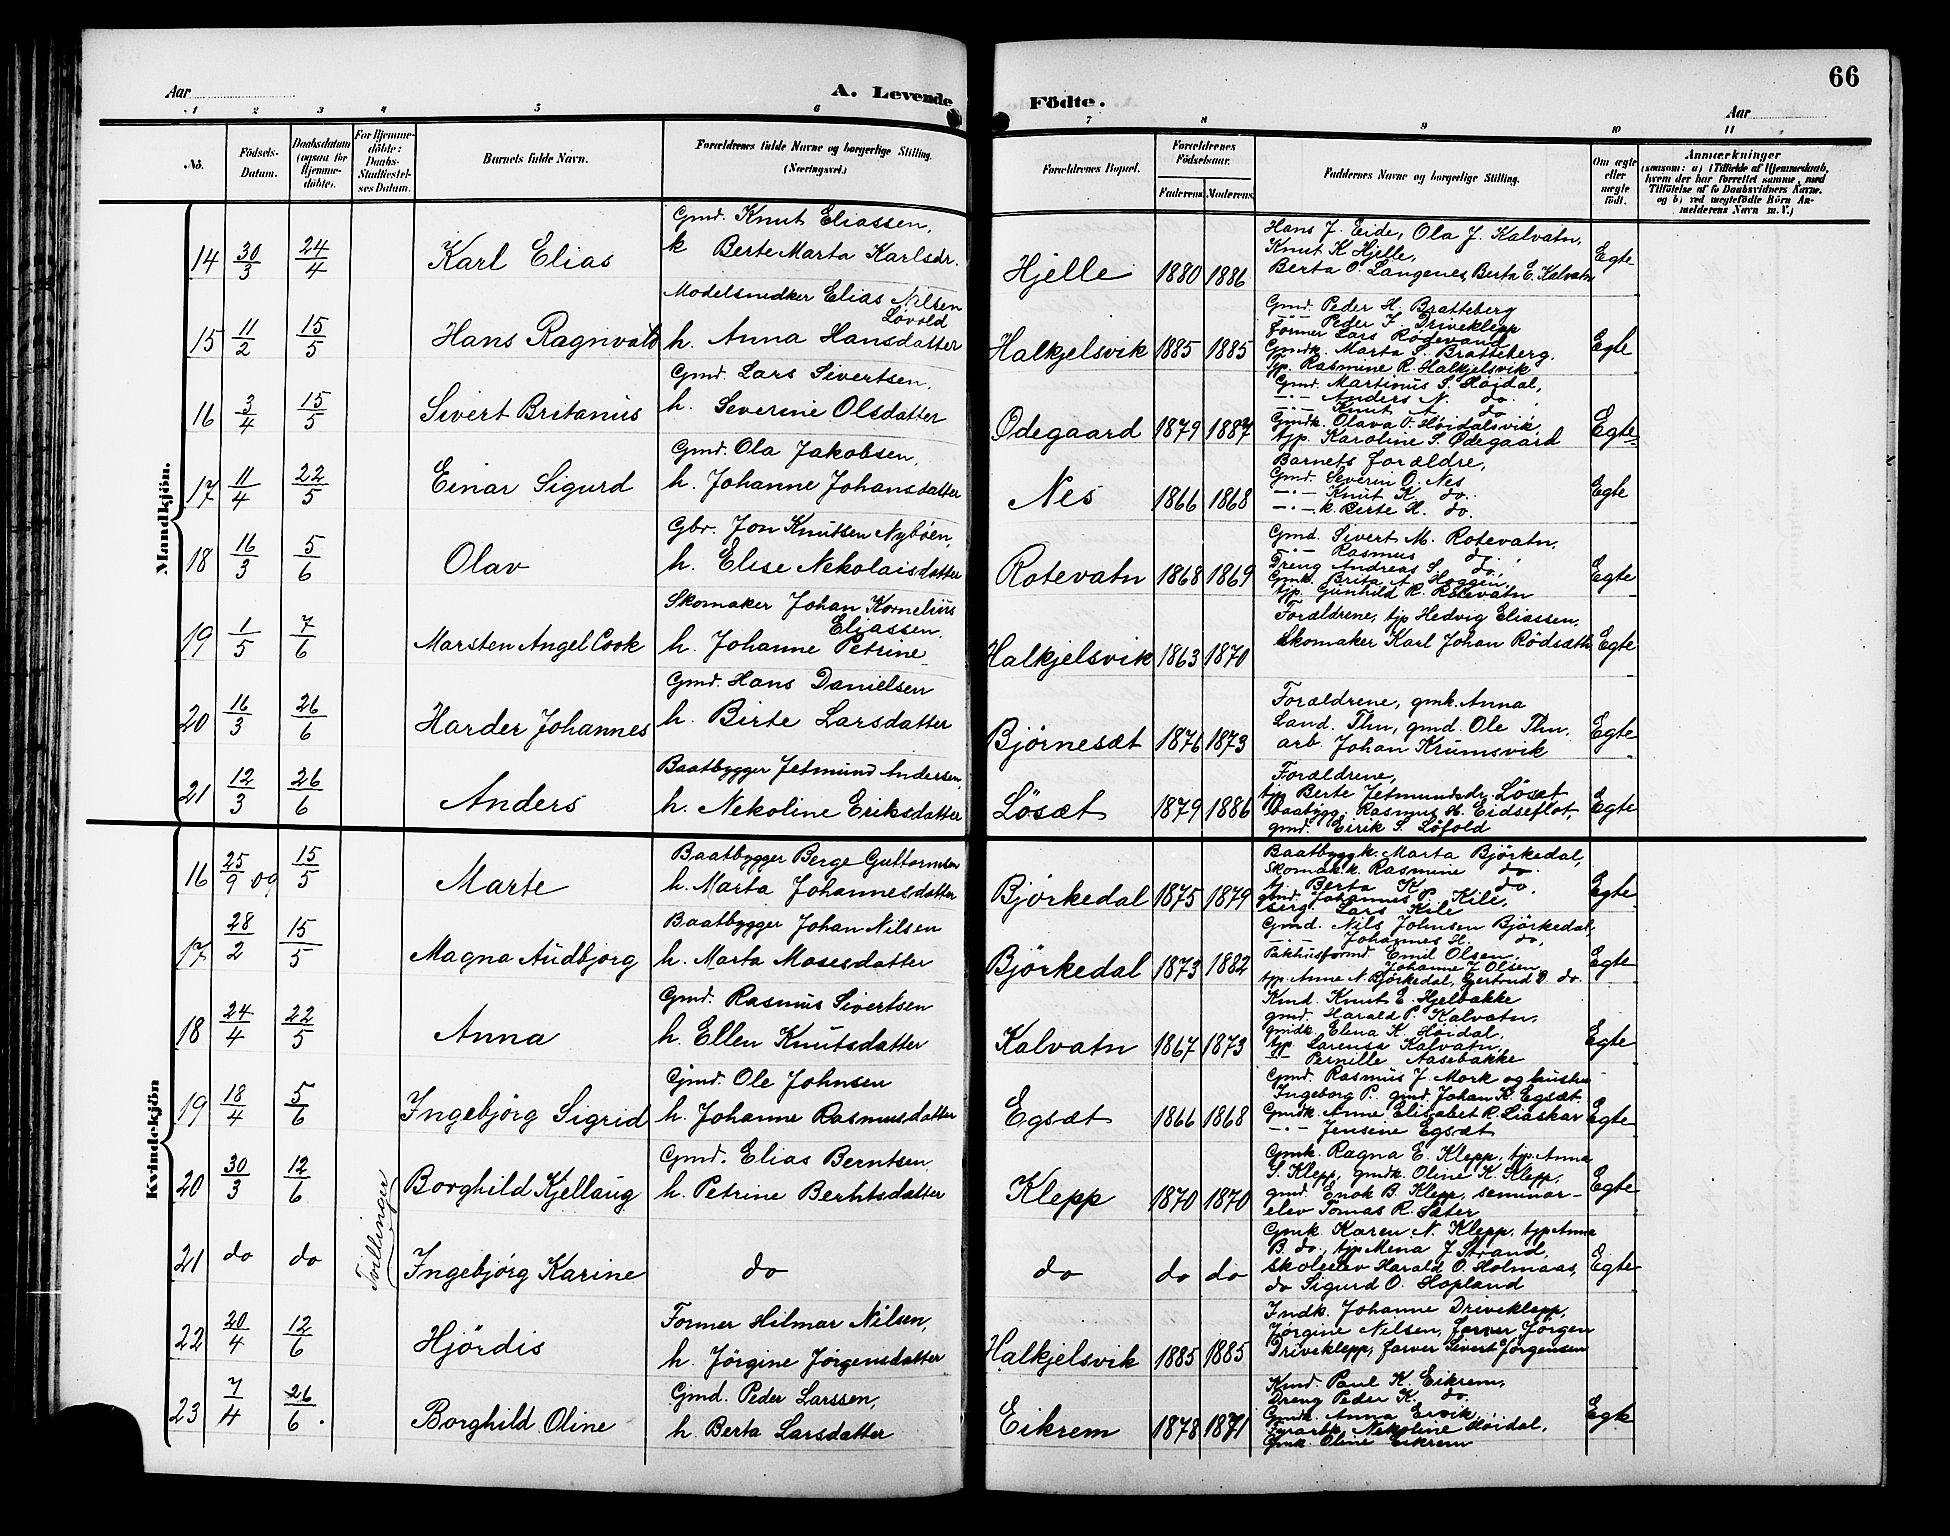 66
Aar
A. Levende
Födte.
Aar
1 2 3 4 5 6 7 8 9 10 11
No.
Födsels-Datum.
Daabsdatum (ogsaa for Hjemme-döbte).
For Hjemme-döbte: Daabs-Stadfæstel-ses Datum.
Barnets fulde Navn.
Forældrenes fulde Navne og borgerlige Stilling. (Næringsvei.)
Forældrenes Bopæl.
Forældrenes Födselsaar.
Faderens Moderens
Faddernes Navne og borgerlige Stilling.
Om ægte eller uægte födt.
Anmærkninger
(saasom: a) i Tilfælde af Hjemmedaab, hvem der har forrettet samme, med Tilföielse af to Daabsvidners Navne, og b) ved uægtefödte Börn An-melderens Navn m. V.)
Mandkjön.
14 30/3 24/4 Karl Elias
Gmd. Knut Eliassen,
k Berte Marta Karlsdr.
Hjelle 1880 1886
Hans J. Eide, Ola J. Kalvatn,
Knut K Hjelle,
Berta O. Langenes, Berta E. Kalvatn
Egte
15 11/2 15/5 Hans Ragnvald
Modelsnedker Elias Nilsen
Løvold
h. Anna Hansdatter
Halkjelsvik 1885 1885
Gmd. Peder H. Bratteberg
-"- Peder I. Driveklepp
former Lars Rødevand
Gmdk. Marta S. Bratteberg.
tjp. Rasmine R. Halkjelsvik
Egte
16 3/4 15/5 Sivert Britanus
Gmd. Lars Sivertsen,
h. Severine Olsdatter
Ødegaard 1879 1887
Gmd. Martinus S. Høidal,
-"- Anders N. do.
-"- Knut A. do
Gmdk. Olava O. Høidalsvik,
tjp. Karoline S. Ødegaard
Egte
17 11/4 22/5 Einar Sigurd
Gmd. Ola Jakobsen,
h. Johanne Johansdatter
Nes 1866 1868
Barnets forældre,
Gmd. Severin O. Nes
-"- Knut K. do.
-"- k. Berte H. do.
Egte
18 16/3 5/6 Olav
Gbr. Jon Knutsen Nybøen,
h. Elise Nekolaisdatter
Rotevatn 1868 1869
Gmd. Sivert M. Rotevatn,
-"- Rasmus do.
Dreng Andreas S. do.
Gmk. Brita A. Hoggen,
tjp. Gunhild R. Rotevatn
Egte
19 1/5 7/6 Marsten Angel Cook
Skomaker Johan Kornelius
Eliassen,
h. Johanne Petrine
Halkjelsvik 1863 1870
Forældrene, tjp Hedvig Eliassen,
Skomaker Karl Johan Rödsæth
Egte
20 16/3 26/6 Harder Johannes
Gmd. Hans Danielsen
h. Birte Larsdatter
Bjørnesæt 1876 1873
Forældrene, gmk. Anna
Land. Thn, gmd. Ole Thn,
arb. Johan Krumsvik
Egte
21 12/3 26/6 Anders
Baatbygger Jetmund Andersen,
h. Nekoline Eriksdatter
Løsæt 1879 1886
Forældrene,
tjp Berte Jetmundsdr. Løsæt
Baatbygg. Rasmus H. Eidseflot,
gmd. Eirik S. Løfold
Egte
Kvindekjön
16 25/9 09 15/5 Marte
Baatbygger Berge Guttormsen
h. Marta Johannesdatter
Bjørkedal 1875 1879
Baatbyggk. Marta Björkedal,
Skomak.k. Rasmine do.
tj. Berta K. do.
gmd. Johannes P. Kile,
serg. Lars Kile
Egte
17 28/2 15/5 Magna Audbjørg
Baatbygger Johan Nilsen
h. Marta Mosesdatter
Björkedal 1873 1882
Gmd. Nils Johnsen Björkedal,
-"- Johannes H. do.
Pakhusformd Emil Olsen,
Johanne J. Olsen,
tjp. Anne N. Björkedal, Gjertrud D. do
Egte
18 24/4 22/5 Anna
Gmd. Rasmus Sivertsen
h. Ellen Knutsdatter
Kalvatn 1867 1873
Kmd. Knut E. Hjelbakke
gmd. Harald P. Kalvatn,
gmdk. Elena K. Høidal,
tjp. Larense Kalvatn,
-"- Pernille Aasebakke
Egte
19 18/4 5/6 Ingebjörg Sigrid
Gmd. Ole Johnsen
h. Johanne Rasmusdatter
Egsæt 1866 1868
Gmd. Rasmus J. Mork og hustru
Ingeborg P. gmd. Johan K. Egsæt,
Gmdk. Anne Elisabet R. Liaskar
-"- Jensine Egsæt
Egte
Tvillinger
20 30/3 12/6 Borghild Kjellaug
Gmd. Elias Berntsen
h. Petrine Berntsdatter
Klepp 1870 1870
Gmk. Ragna E. Klepp, tjp. Anna
S. Klepp, gmdk. Oline K. Klepp,
gmd. Enok B. Klepp, seminar-
elev Tomas R. Sæter
Egte
21 do do Ingebjørg Karine
do
do do do
Gmk. Karen N. Klepp, tjp Anna
B. do., tjp Mena J Strand,
skoleelev Harald O. Holmaas,
do Sigurd O. Hopland
Egte
22 20/4 12/6 Hjördis
Former Hilmar Nilsen,
h. Jörgine Jörgensdatter
Halkjelsvik 1885 1885
Indk. Johanne Driveklepp,
Jørgine Nilsen, farver Jørgen
Driveklepp, farver Sivert Jørgensen
23 7/4 26/6 Borghild Oline
Gmd. Peder Larssen,
h Berta Larsdatter
Eikrem 1878 1871
Kmd. Paul K. Eikrem,
Dreng Peder K. do
Gmdk. Anna Ervik
Nekoline Høidal,
Gmk. Oline Eikrem
Egte